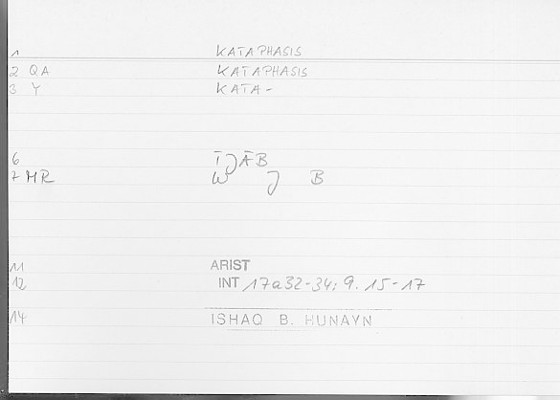 1 KATAPHASIS
2 QA KATAPHASIS
3 Y KATA-
6 ĪJĀB
7 MR W J B
11 ARIST
12 INT 17a32-34; 9.15-17
14 ISHAQ B. HUNAYN